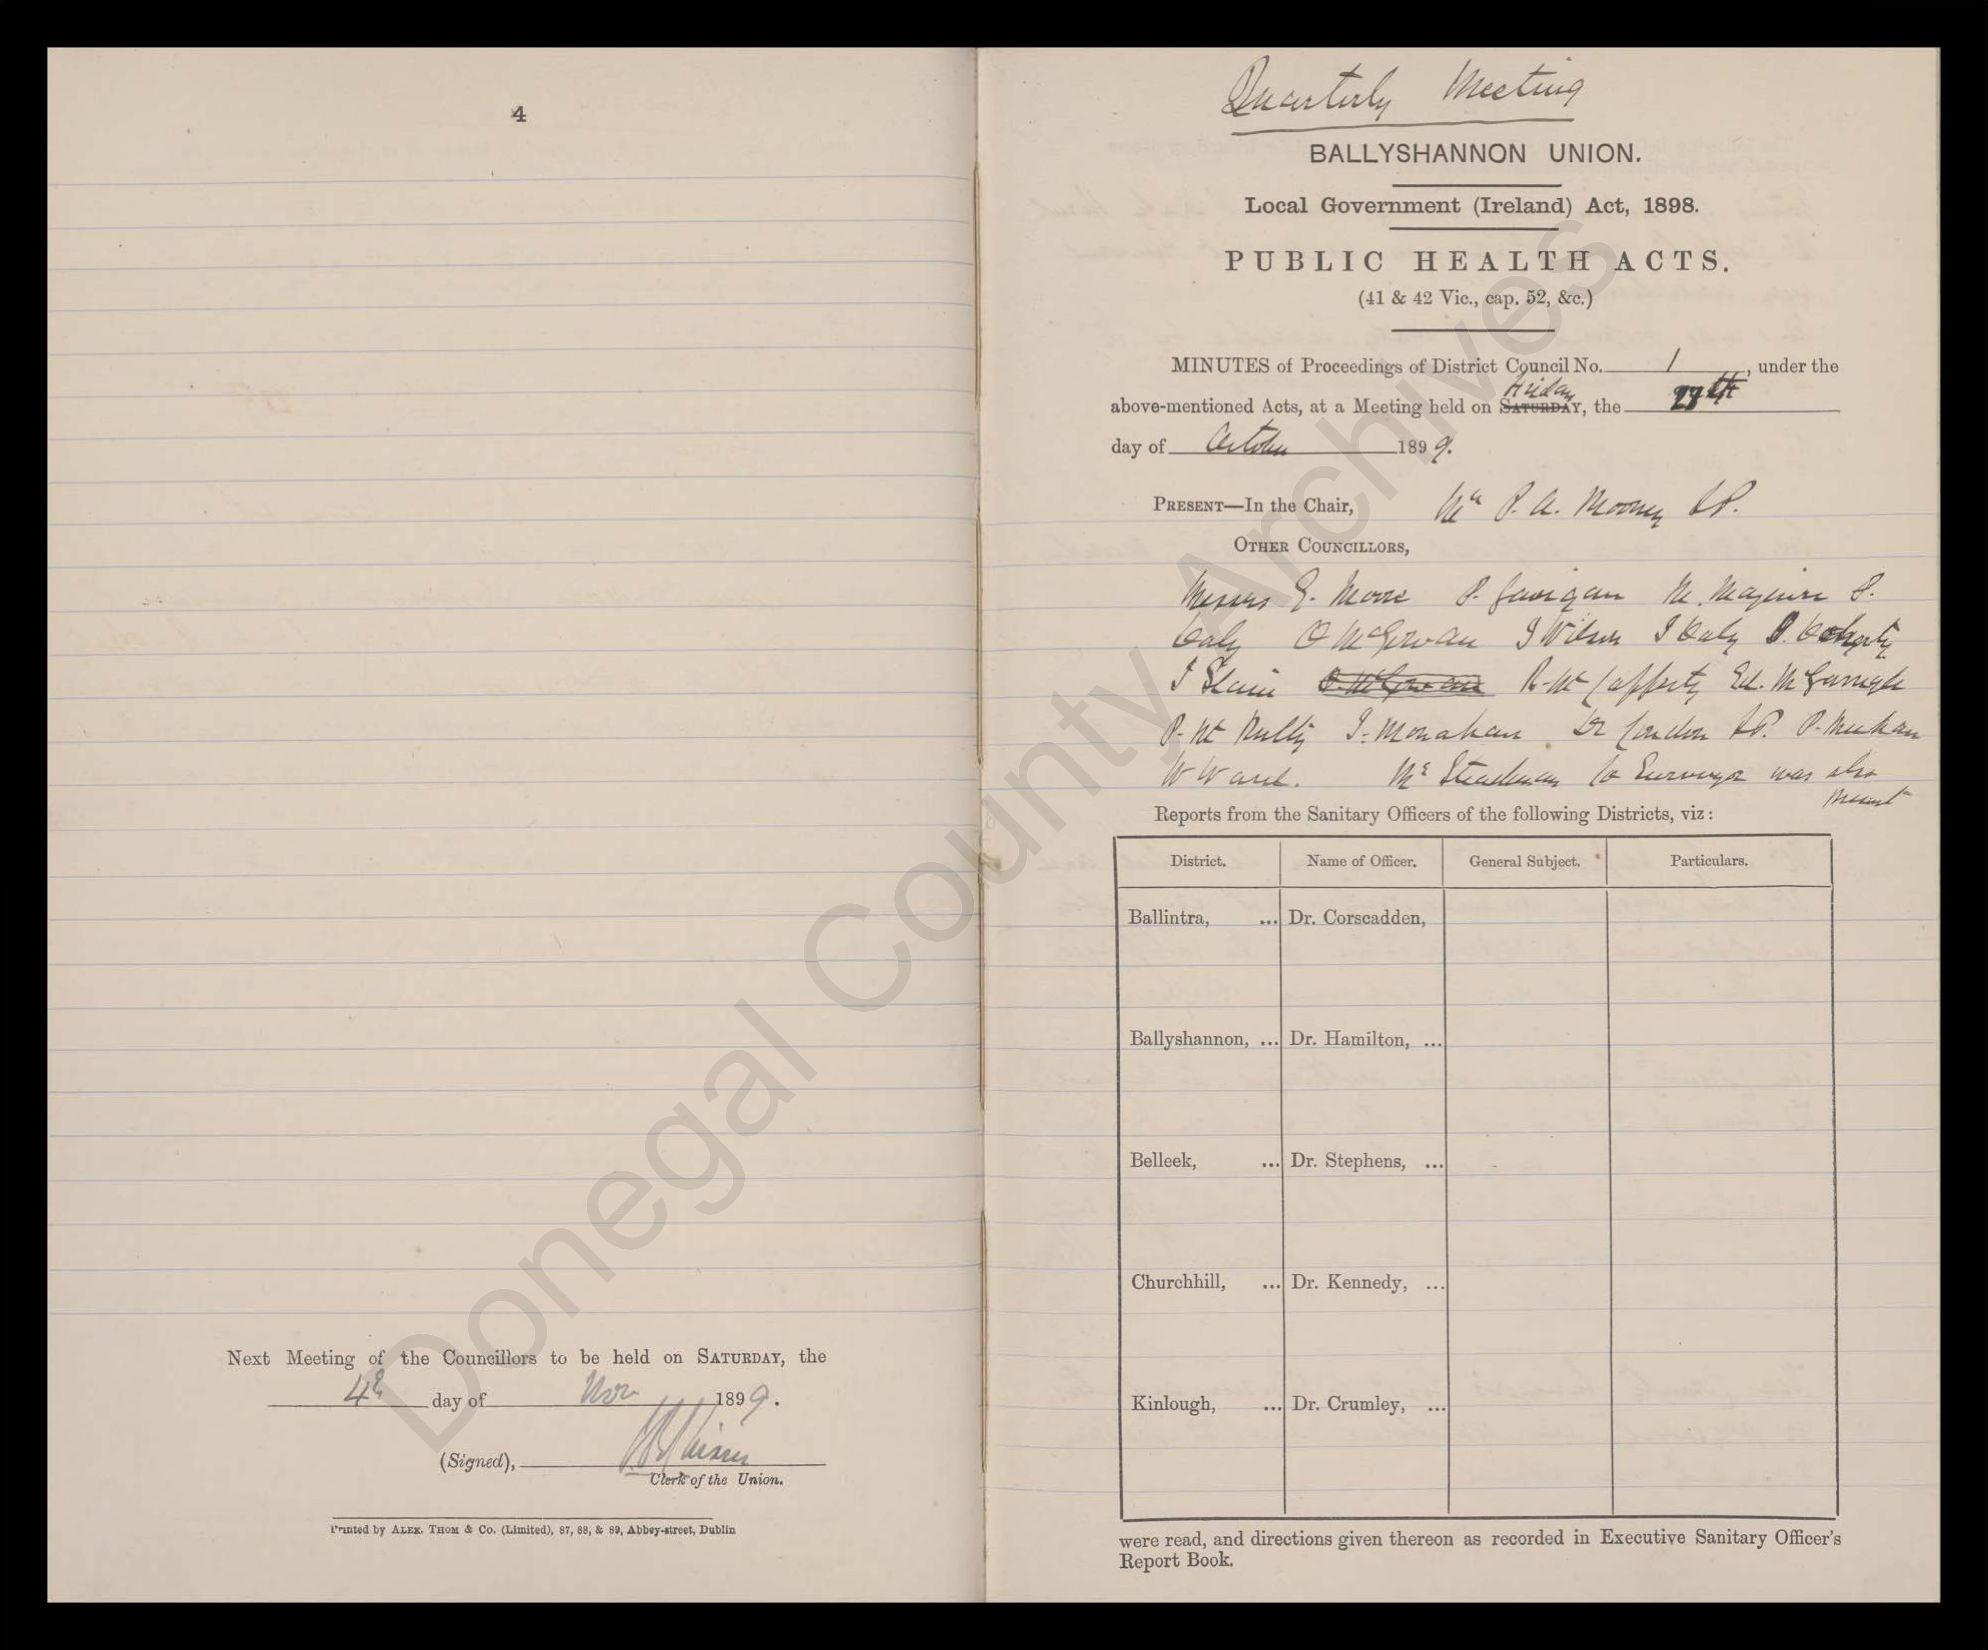 4
Next Meeting of the Councillors to be held on SATURDAY, the
4th day of Nov 1899.
(Signed),
Clerk of the Union.
Printed by ALEX. THOM & Co. (Limited), 87, 88, & 89, Abbey-street, Dublin
Quarterly Meeting
BALLYSHANNON UNION.
Local Government (Ireland) Act, 1898.
PUBLIC HEALTH ACTS.
(41 & 42 Vic., cap. 52, &c.)
MINUTES of Proceedings of District Council No. 1, under the
Friday
above-mentioned Acts, at a Meeting held on SATURDAY, the 27th
day of October 1899.
PRESENT—In the Chair, Mr P. A. Mooney J.P.
OTHER COUNCILLORS,
Messrs G. Moore P. Gavigan M. Maguire P.
Daly O McGowan J Wilson J Daly D. Doherty
J Slavin O. McGowan R. Mc Cafferty Ed. McGarrigle
P. Mc Nulty J. Monahan Dr Condon J.P. P. Meehan
W Ward. Mr Steadman Co Surveyor was also
present
Reports from the Sanitary Officers of the following Districts, viz:
District. Name of Officer. General Subject. Particulars.
Ballintra, ... Dr. Corscadden,
Ballyshannon, ... Dr. Hamilton, ...
Belleek, ... Dr. Stephens, ...
Churchhill, ... Dr. Kennedy, ...
Kinlough, ... Dr. Crumley, ...
were read, and directions given thereon as recorded in Executive Sanitary Officer's
Report Book.
Donegal County Archives